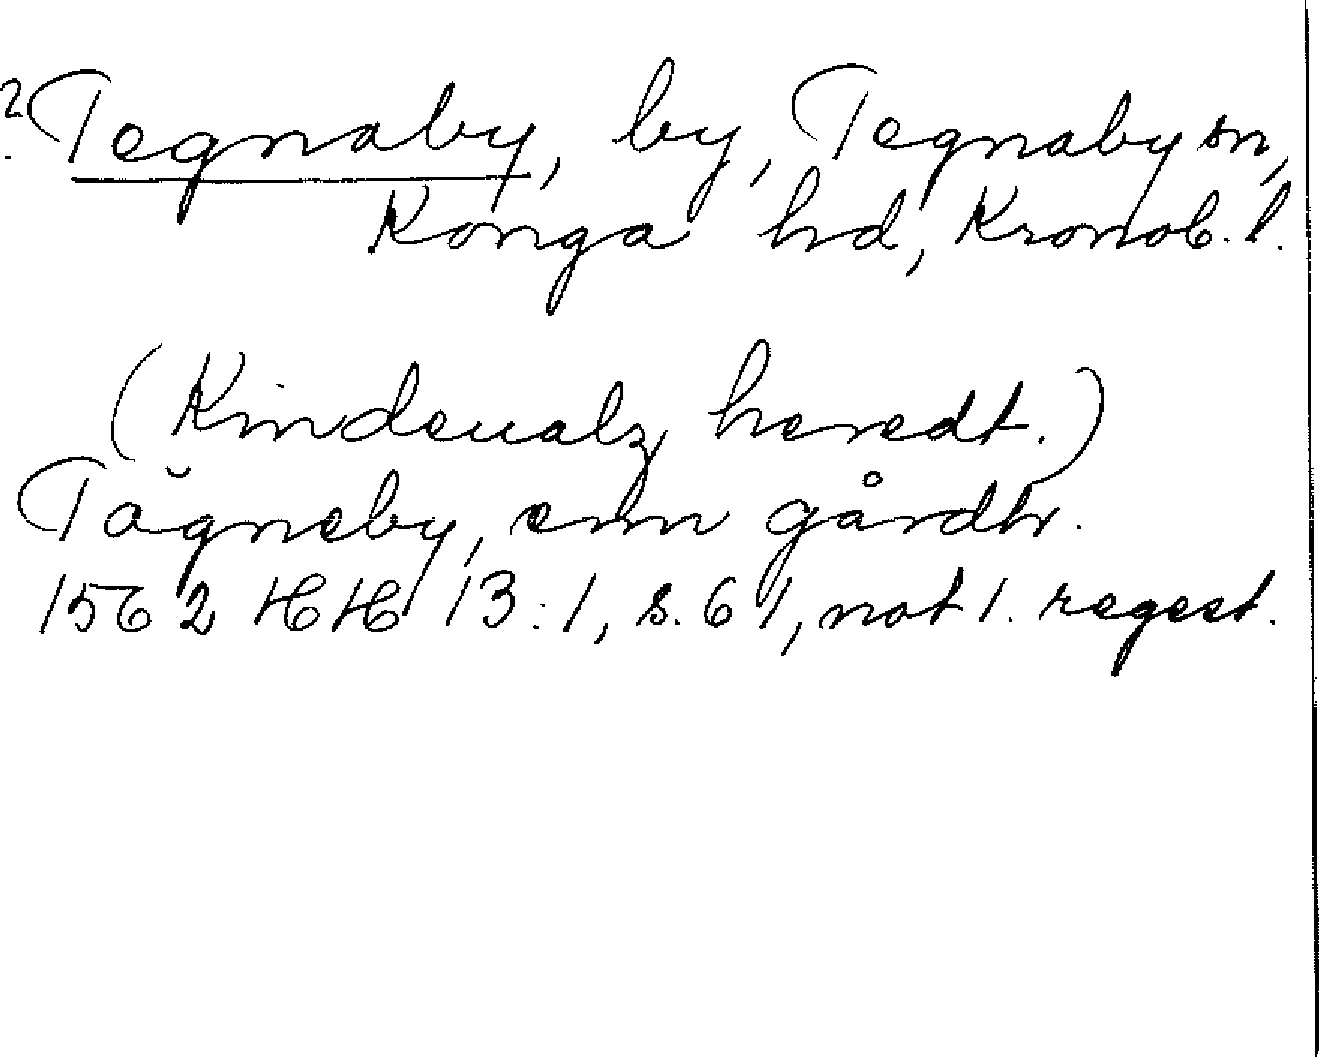 2. Tegnaby, by, Tegnaby sn,
Konga hd, Kronob. l.
(Kindeualz heredt.)
Tăgneby, enn gårdh.
1562 HH 13:1, s. 61, not 1. regest.